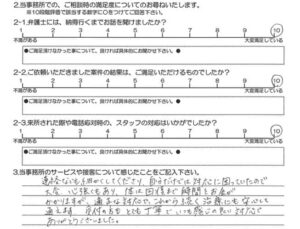 2.当事務所での、ご相談時の満足度についてのお尋ねいたします。
※10段階評価で該当する数字に○をつけてご回答下さい。
2-1.弁護士には、納得行くまでお話を聞けましたか？
1 2 3 4 5 6 7 8 9 10
不満がある 大変満足している
●ご満足頂けなかった事について、良ければ具体的にお聞かせ下さい。●
2-2.ご依頼いただきました案件の結果は、ご満足いただけるものでしたか？
1 2 3 4 5 6 7 8 9 10
不満がある 大変満足している
●ご満足頂けなかった事について、良ければ具体的にお聞かせ下さい。●
2-3.来所された際や電話応対時の、スタッフの対応はいかがでしたか？
1 2 3 4 5 6 7 8 9 10
不満がある 大変満足している
●ご満足頂けなかった事について、良ければ具体的にお聞かせ下さい。●
3.当事務所のサービスや接客について感じたことをご記入下さい。
連絡なども細かくしてくださり、自分だけでは対応に困っていたので
大変 心強くもあり、体は回復まで 時間とお金が
かかりますが、適正な対応で、これから末長く治療にも安心して
通えます。受付の方もとても丁寧で いつも感じの良い対応で
ありがとうございました。